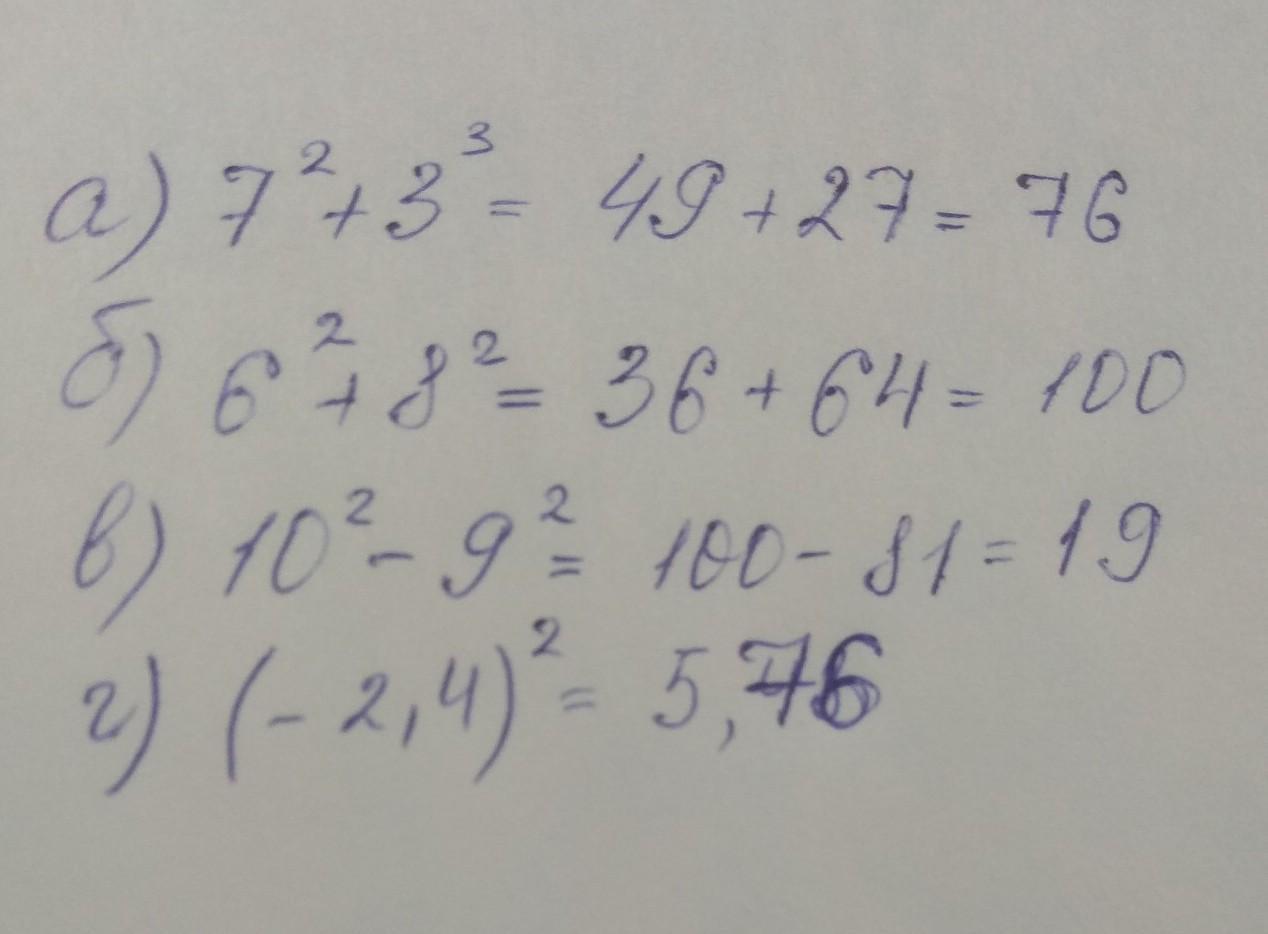 а) 7² + 3³ = 49 + 27 = 76
б) 6² + 8² = 36 + 64 = 100
в) 10² - 9² = 100 - 81 = 19
г) (- 2,4)² = 5,76